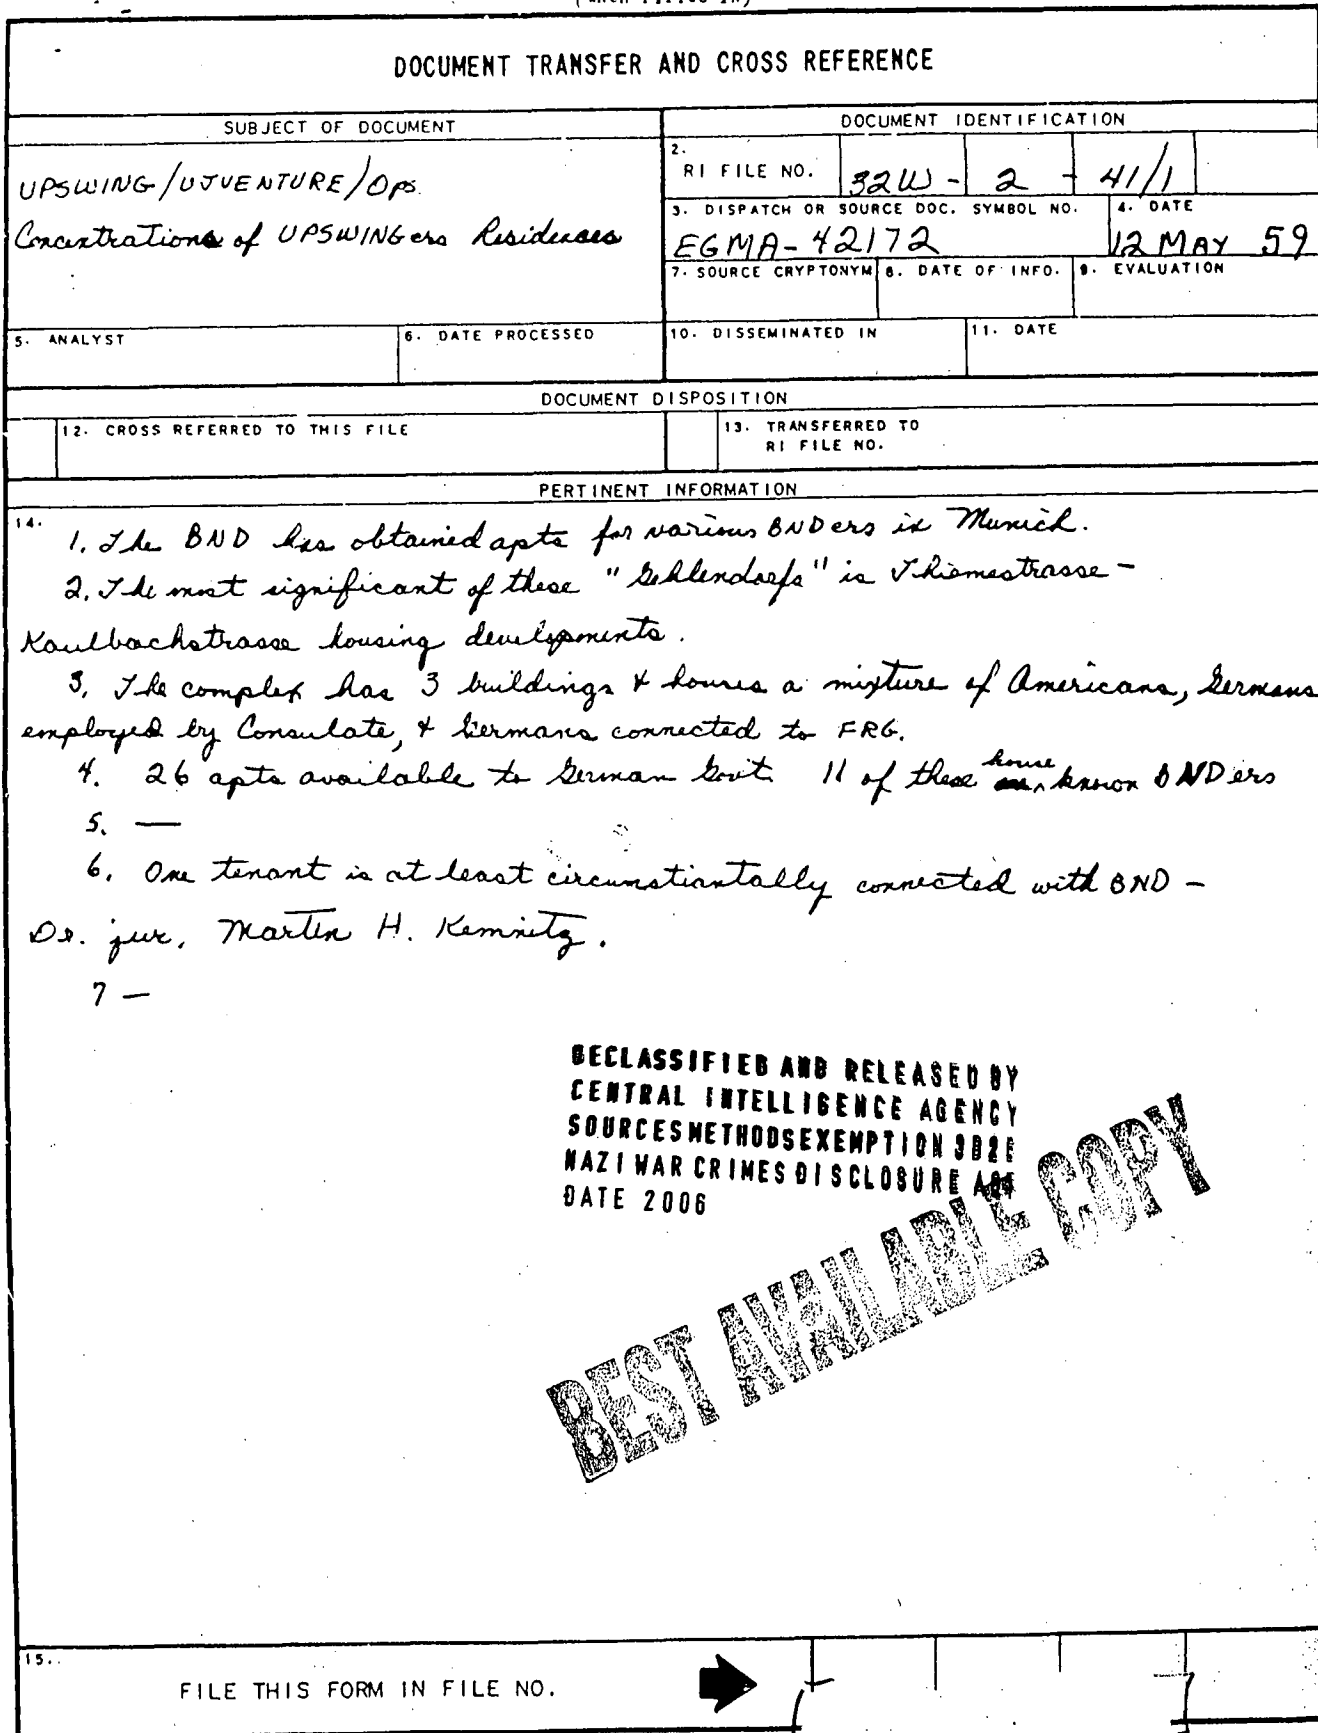 DOCUMENT TRANSFER AND CROSS REFERENCE
SUBJECT OF DOCUMENT
UPSWING/UJVENTURE/Ops.
Concentrations of UPSWINGers Residences
DOCUMENT IDENTIFICATION
2.
RI FILE NO. 32W - 2 - 41/1
3. DISPATCH OR SOURCE DOC. SYMBOL NO.
EGMA-42172
4. DATE
12 MAY 59
7. SOURCE CRYPTONYM
8. DATE OF INFO.
9. EVALUATION
5. ANALYST
6. DATE PROCESSED
10. DISSEMINATED IN
11. DATE
DOCUMENT DISPOSITION
12. CROSS REFERRED TO THIS FILE
13. TRANSFERRED TO
RI FILE NO.
PERTINENT INFORMATION
14.
1. The BND has obtained apts for various BNDers in Munich.
2. The most significant of these "Gehlendorfs" is Thiemestrasse-
Kaulbachstrasse housing developments.
3. The complex has 3 buildings & houses a mixture of Americans, Germans
employed by Consulate, & Germans connected to FRG.
4. 26 apts available to German Govt. 11 of these house known BNDers
5. —
6. One tenant is at least circumstiantally connected with BND -
Dr. jur. Martin H. Kemnitz.
7 —
DECLASSIFIED AND RELEASED BY
CENTRAL INTELLIGENCE AGENCY
SOURCES METHODS EXEMPTION 3B2E
NAZI WAR CRIMES DISCLOSURE ACT
DATE 2006
BEST AVAILABLE COPY
15.
FILE THIS FORM IN FILE NO.